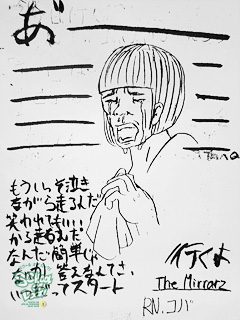 あ゛ー
もういっそ泣き
ながら走るんだ
笑われてもいい
から走るんだ!
なんだ簡単じゃ
ないか 答えなんてさ、
いつだってスタート
行くよ
The Mirrorz
RN.コバ